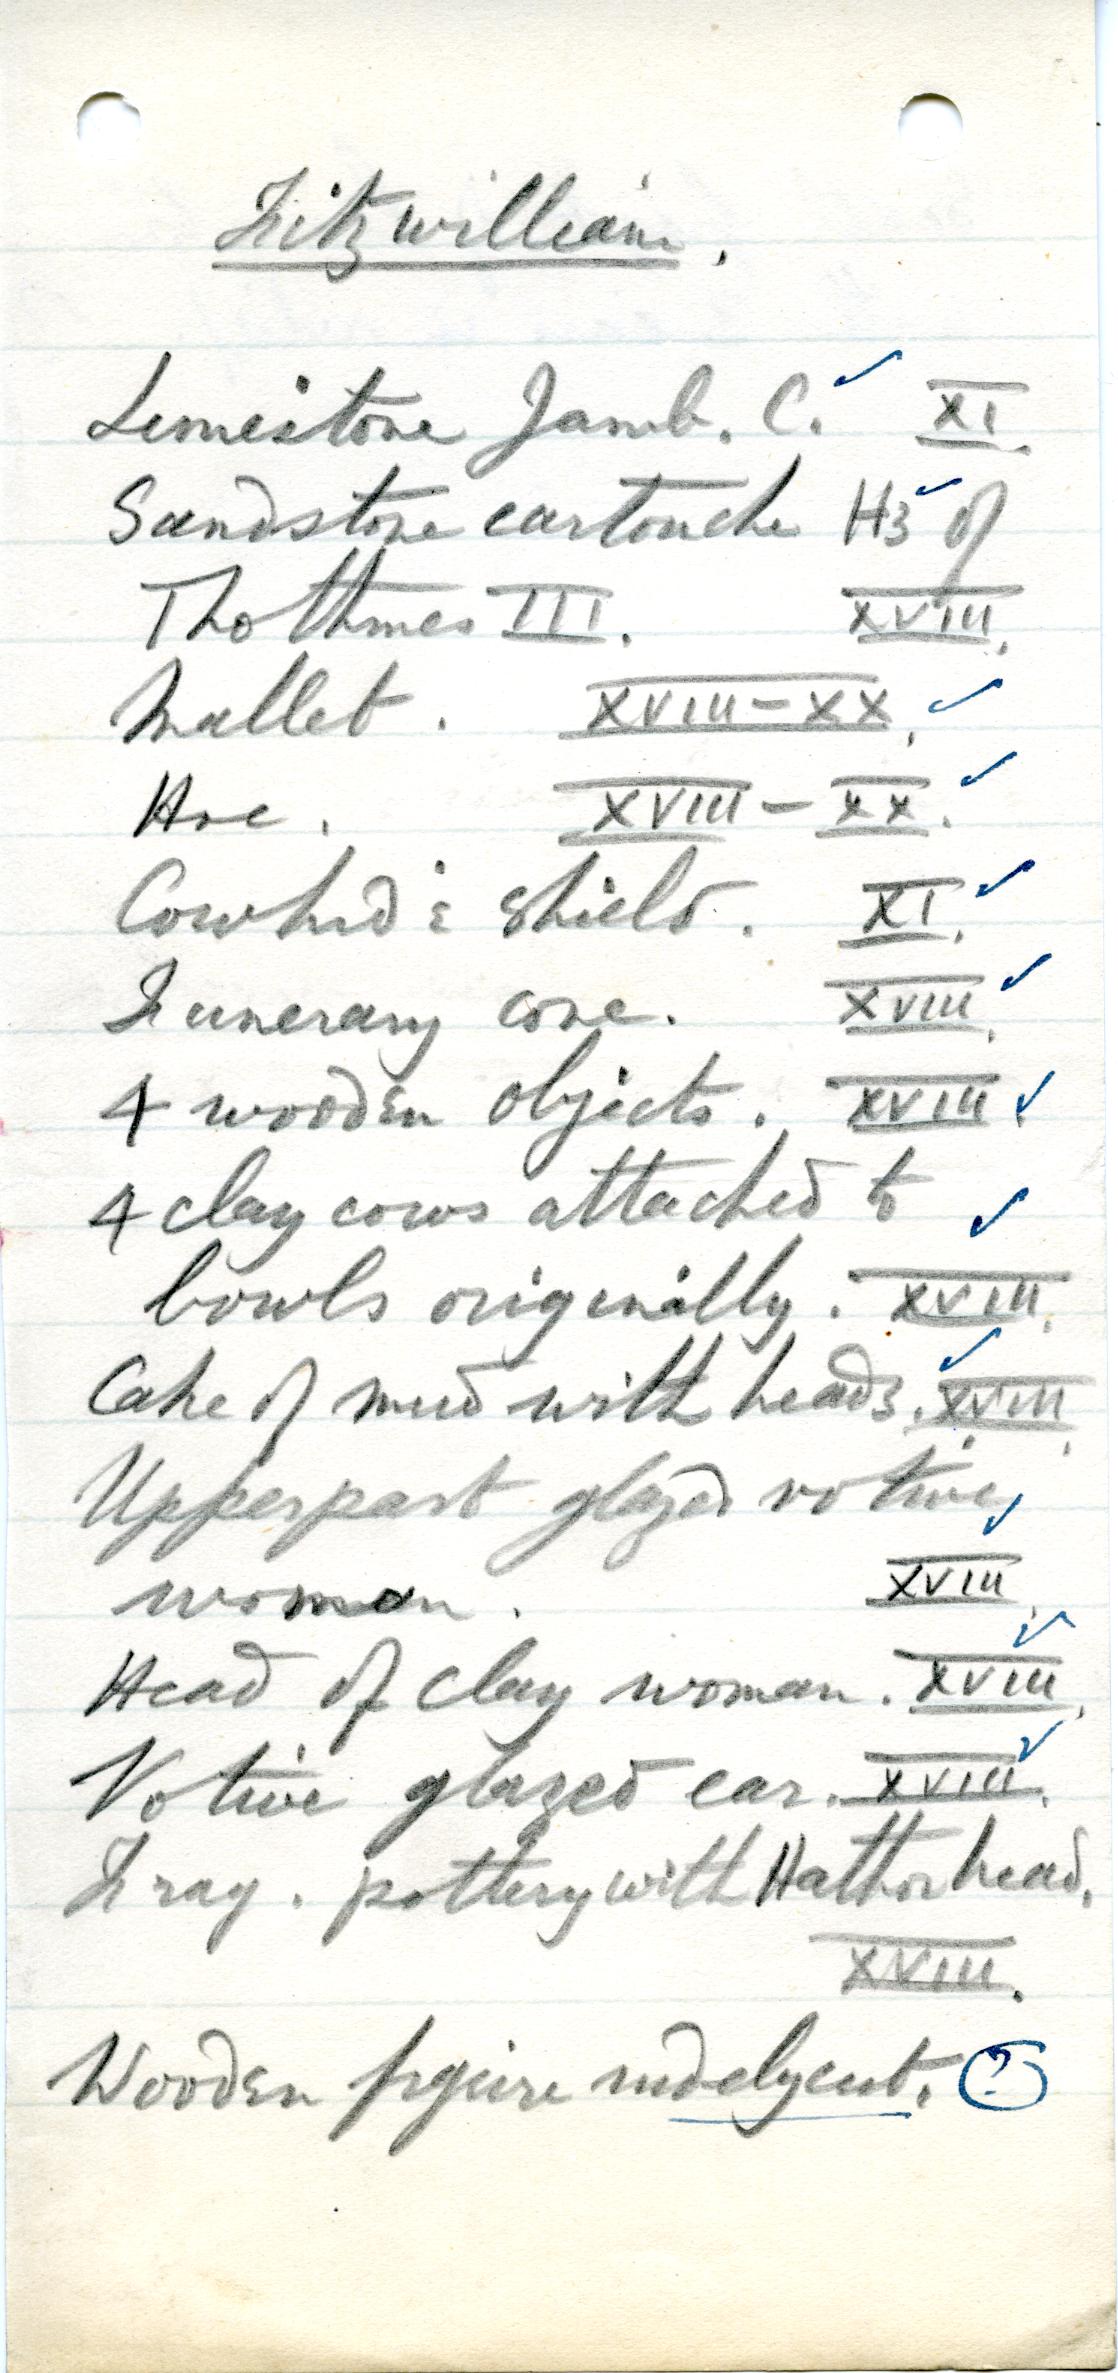 Fitzwilliam.
Limestone Jamb. C. ✓ XI.
Sandstone cartouche H3 ✓ of
Thothmes III. XVIII.
Mallet. XVIII-XX. ✓
Hoe. XVIII-XX. ✓
Cowhide shield. XI. ✓
Funerary cone. XVIII. ✓
4 wooden objects. XVIII. ✓
4 clay cows attached to ✓
bowls originally. XVIII.
Cake of mud with heads. XVIII. ✓
Upperpart glazed votive ✓
woman. XVIII.
Head of clay woman. XVIII. ✓
Votive glazed ear. XVIII. ✓
Frag. pottery with Hathor head.
XVIII.
Wooden figure . ?